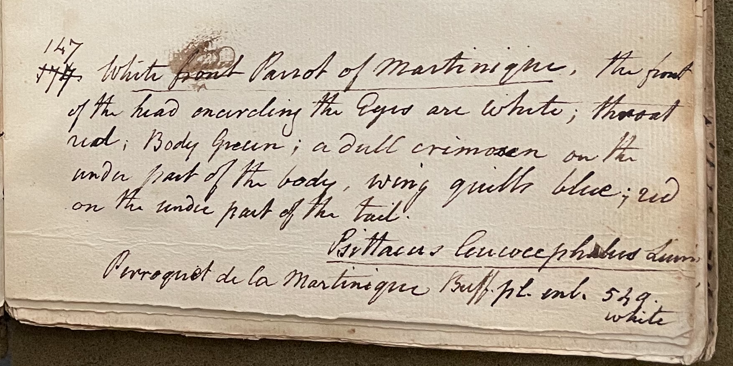 147
174 White front Parrot of Martinique. the front
of the head encircling the Eyes are White; throat
red; Body Green; a dull crimosen on the
under part of the body, wing quills blue; red
on the under part of the tail.
Psittacus leucocephalus Linn.
Perroquet de la Martinique Buff. pl. enl. 549.
White